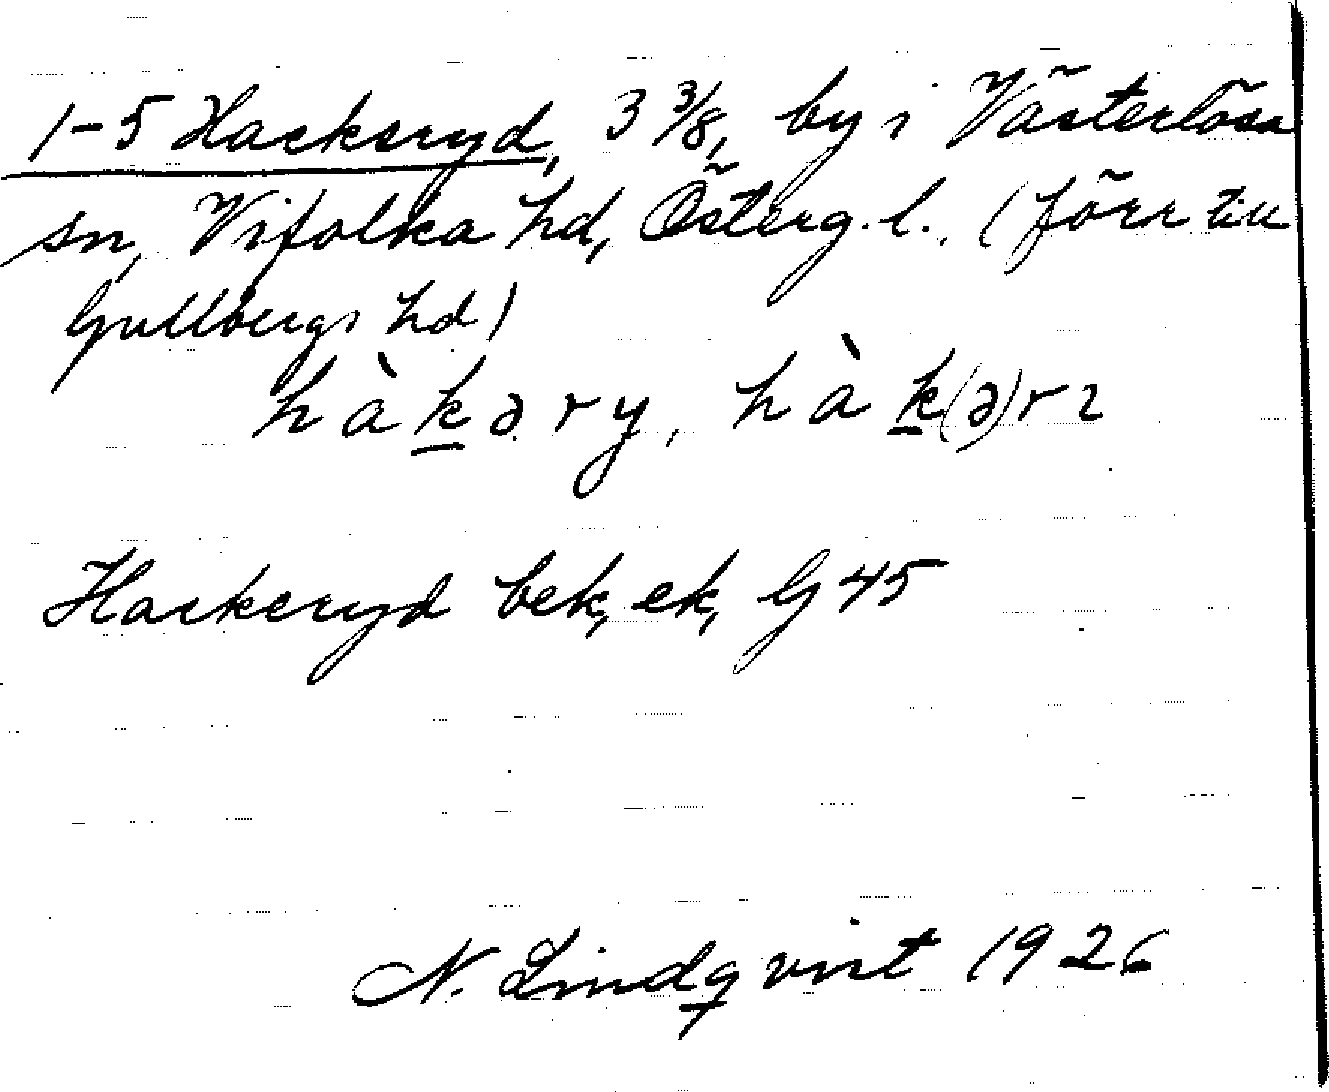 1-5 Hackeryd, 3 3/8, by i Västerlösa
sn, Vifolka hd, Österg. l. (förr till
Gullbergs hd)
hàk̲əry, hàk̲(ə)rı
Hackeryd bek, ek, G 45
N. Lindqvist 1926